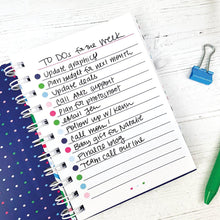 TO DOs for the week
Update graphics
Plan budget for next month
Update deals
Call AMZ support
Plan for photoshoot
eMail Jen
Follow up w/ Kevin
Call mom!
Baby gift for Natalie
Finalize blog
Team call outline